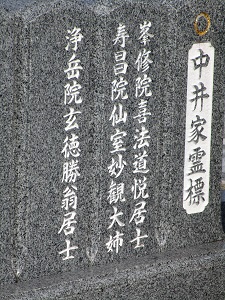 中井家霊標
峯修院喜法道悦居士
寿昌院仙室妙観大姉
浄岳院玄徳勝翁居士